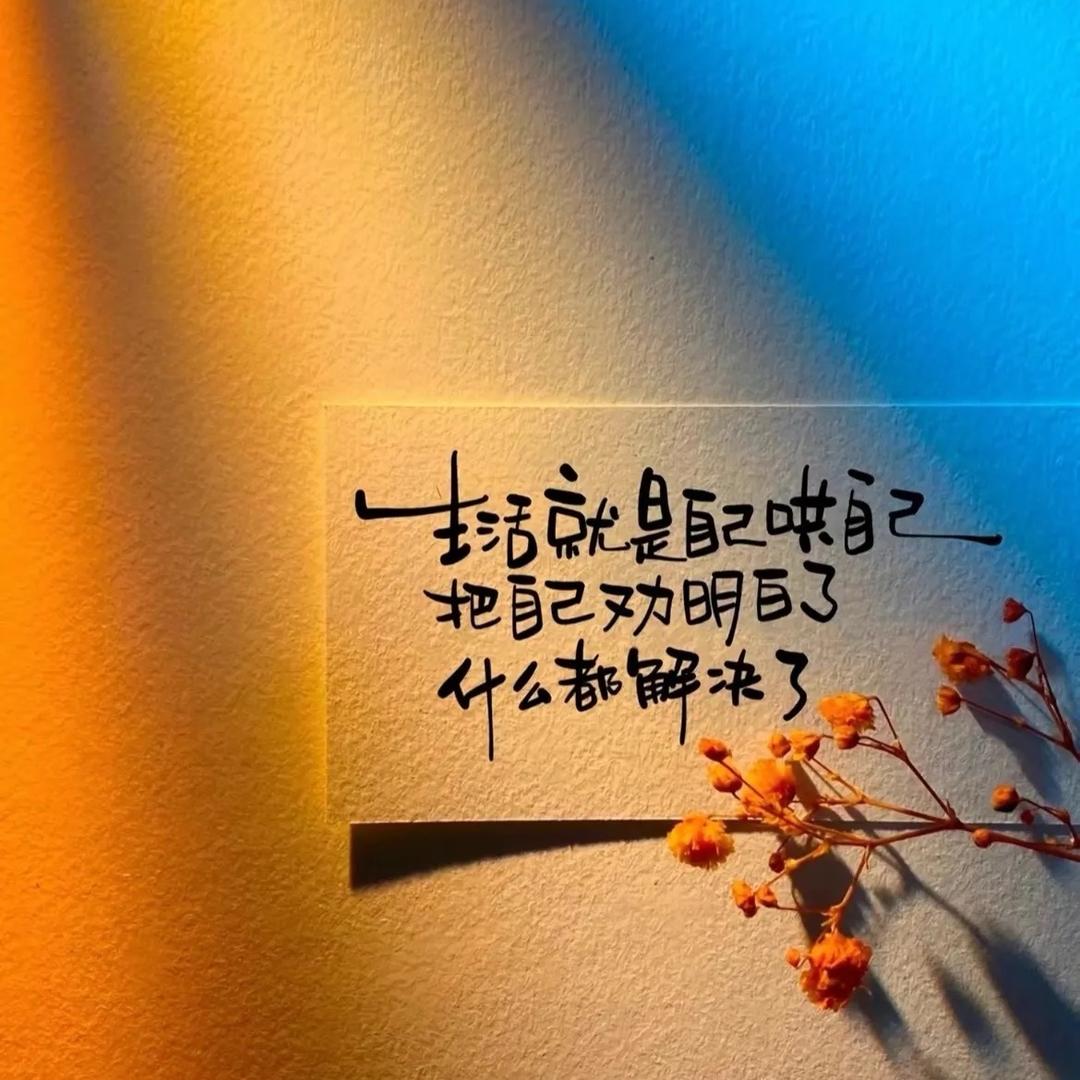 生活就是自己哄自己
把自己劝明白了
什么都解决了